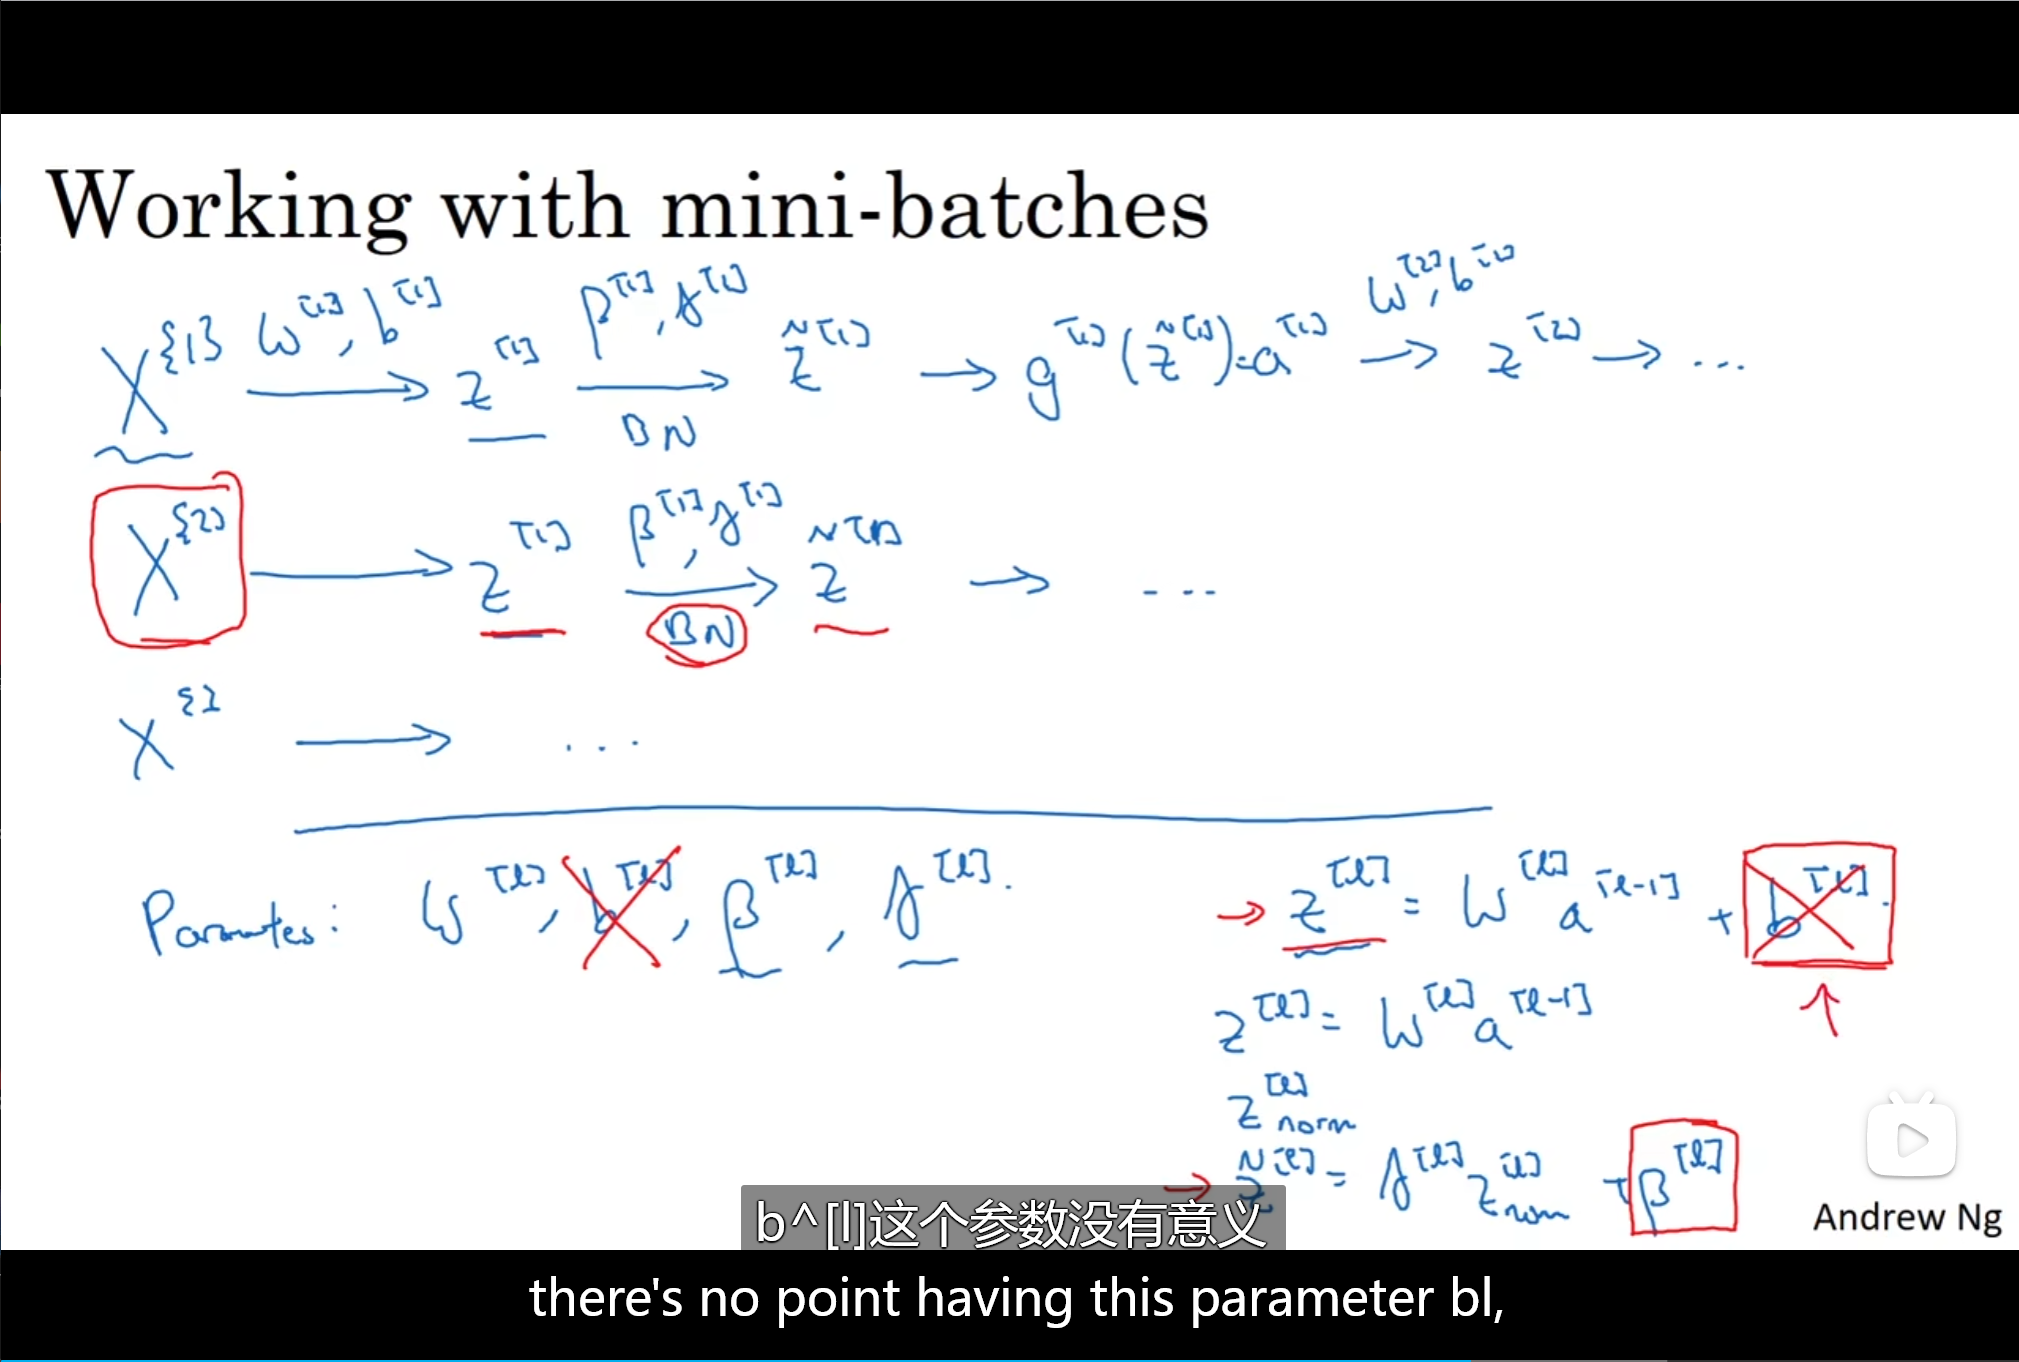 Working with mini-batches
X^{1} W^[1], b^[1] → z^[1] β^[1], γ^[1] → BN z̃^[1] → g^[1](z̃^[1])=a^[1] W^[2], b^[2] → z^[2] → ...
X^{2} → z^[1] β^[1], γ^[1] → BN z̃^[1] → ...
X^{3} → ...
Parameters: W^[l], b^[l], β^[l], γ^[l].
→ z^[l] = W^[l] a^[l-1] + b^[l].
z^[l] = W^[l] a^[l-1]
z^[l]_norm
→ z̃^[l] = γ^[l] z^[l]_norm + β^[l]
Andrew Ng
b^[l]这个参数没有意义
there's no point having this parameter bl,